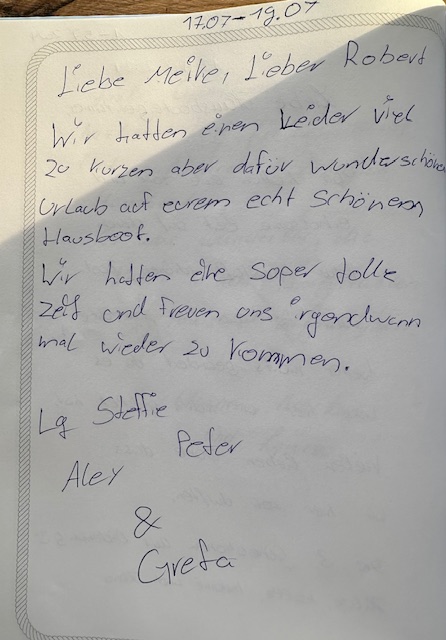 17.07-19.07
Liebe Meike, Lieber Robert
Wir hatten einen Leider viel
zu kurzen aber dafür wunderschönen
Urlaub auf eurem echt schönem
Hausboot.
Wir hatten eine super tolle
Zeit und freuen uns irgendwann
mal wieder zu kommen.
Lg Steffie
Peter
Alex
&
Greta